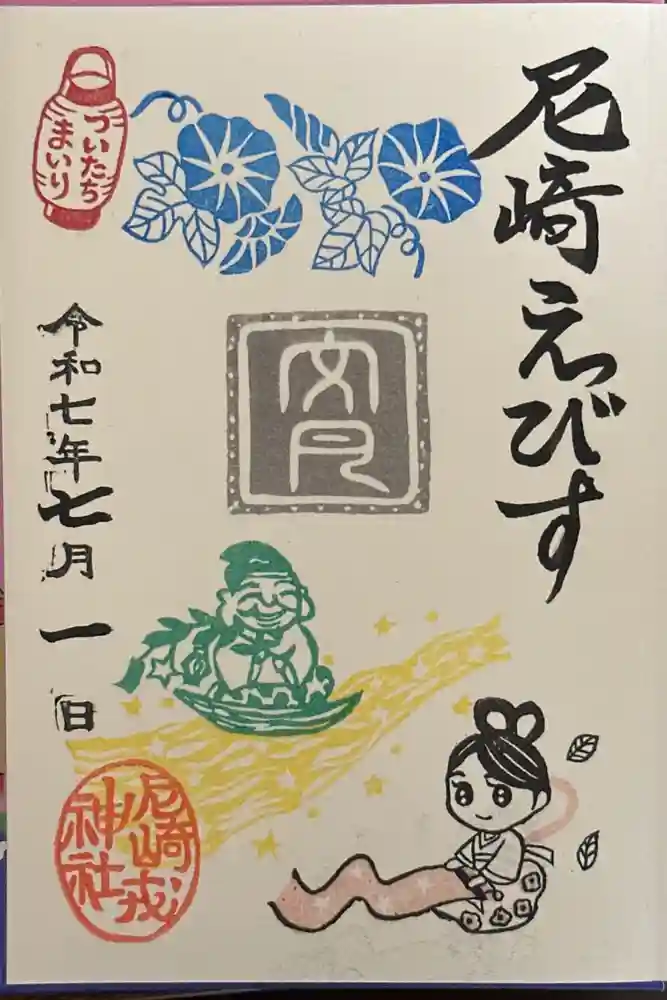 尼崎えびす
ついたち
まいり
文月
令和七年七月一日
尼崎戎
神社